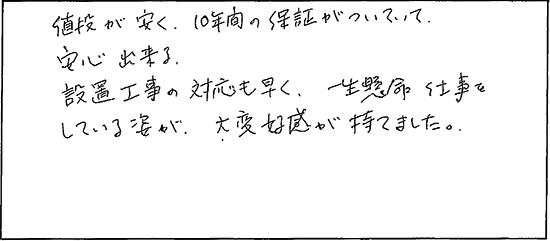 値段が安く、10年間の保証がついていて、
安心出来る。
設置工事の対応も早く、一生懸命仕事を
している姿が、大変好感が持てました。